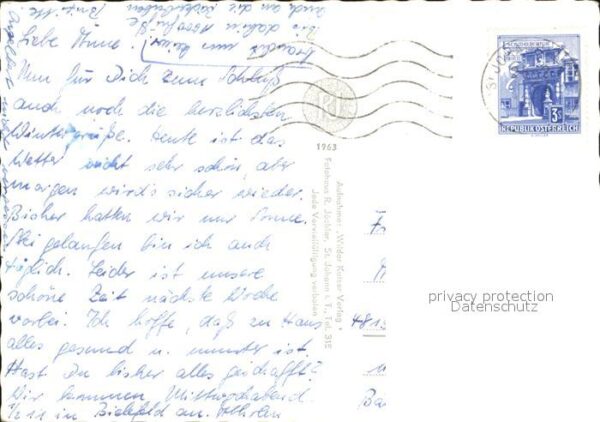 auch an die
Bis dahin 1000 Grüße
brauchst nur
Liebe Anne!
Nun für Dich zum Schluß
auch noch die herzlichsten
Wintergrüße. Heute ist das
Wetter nicht sehr schön, aber
morgen wird's sicher wieder.
Bisher hatten wir nur Sonne.
Ski gelaufen bin ich auch
täglich. Leider ist unsere
schöne Zeit nächste Woche
vorbei. Ich hoffe, daß zu Haus
alles gesund u. munter ist.
Hast Du bisher alles geschafft?
Wir kommen Mittwochabend
1/2 11 in Bielefeld an.
1963
Aufnahme: „Wilder Kaiser Verlag"
Fotohaus R. Jöchler, St. Johann i. T., Tel. 31E
Jede Vervielfältigung verboten
ST. JOH
3 S
REPUBLIK ÖSTERREICH
481
privacy protection
Datenschutz